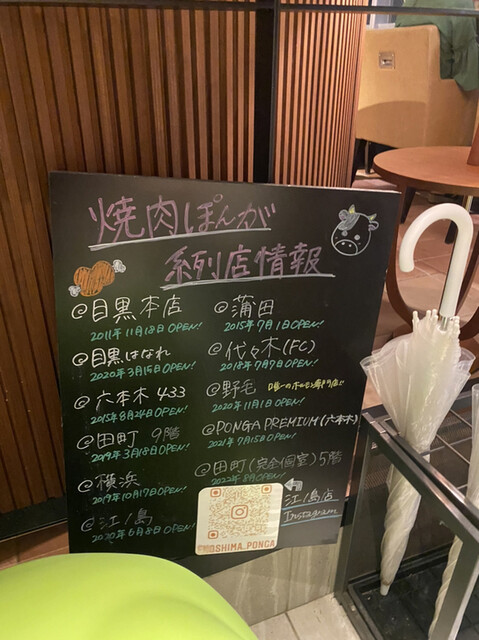 焼肉ぽんが
系列店情報
@目黒本店
2011年11月18日OPEN!
@目黒はなれ
2020年3月15日OPEN!
@六本木433
2015年8月24日OPEN!
@田町 9階
2019年3月18日OPEN!
@横浜
2019年10月19日OPEN!
@江ノ島
2020年6月8日OPEN!
@蒲田
2015年7月1日OPEN!
@代々木(FC)
2018年7月7日OPEN!
@野毛 唯一のホルモン専門店!!
2020年11月1日OPEN!
@PONGA PREMIUM(六本木)
2021年7月15日OPEN!
@田町(完全個室)5階
2022年8月OPEN!
江ノ島店
Instagram
ENOSHIMA_PONGA